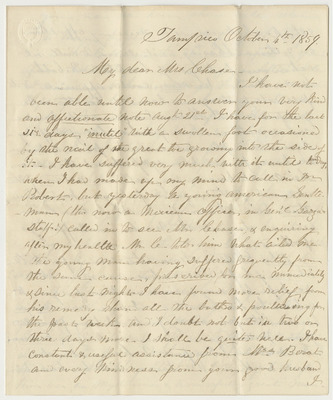 Tampico October 5th 1859
My dear Mrs. Chase
I have not
been able until now to answer your very kind
and affectionate note Augt 21st. I have for the last
six days, with a swollen foot occasioned
by the nail of the great toe growing into the side of
it - I have suffered very much with it until to day
when I had made up my mind to call in Mr
but yesterday a young american
(tho now a Mexican officer, in Genl
staff) called in to see Mr. Chase & enquiring
after my health Mr C told him what ailed me
The young man having suffered frequently from
the same cause, prescribed for me immediately
& since last night I have found more relief from
his remedy than all the baths & poultices for
the past week and I doubt not but in two or
three days more I shall be quite well. I have
constant & useful assistance from Mrs
and every kindness from your good husband
I